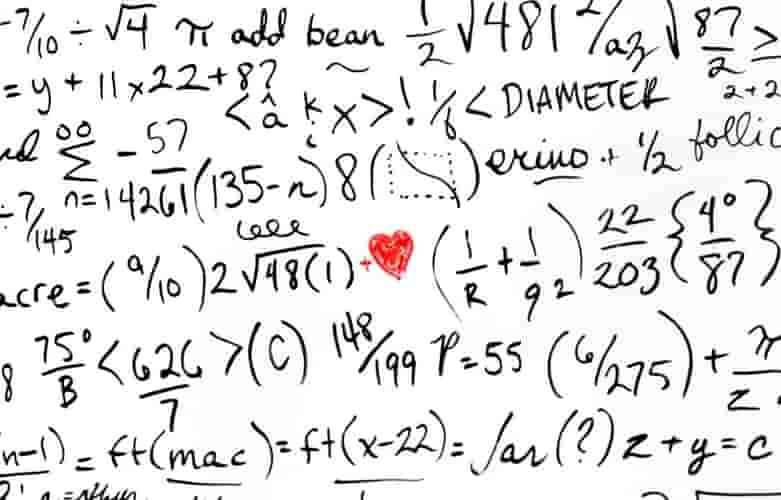 -7/10 ÷ √4 π add bean 1/2 √481 2/az √87/2 >
= y + 11x22+8? 2+2
<â k x>! 1/6 < DIAMETER
∞ Σ n=1 -57/4261 (135-n) 8 ( ) erino + 1/2 follic
÷7/145
acre = (9/10) 2√48(1) + ❤ (1/R + 1/9 2) 22/203 {4°/87}
8 75°/B <626/7 >(C) 148/199 P=55 (6/275) + π/z
(n-1) = ft(mac) = ft(x-22) = ∫ar(?) z+y=c